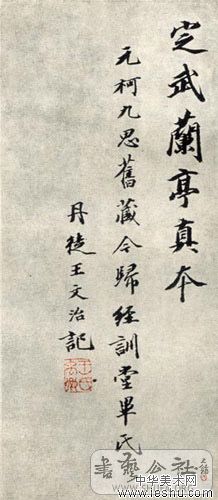 定武蘭亭真本
元柯九思舊藏今歸經訓堂畢氏
丹徒王文治記
書藝公社
中华美术网
www.leshu.com